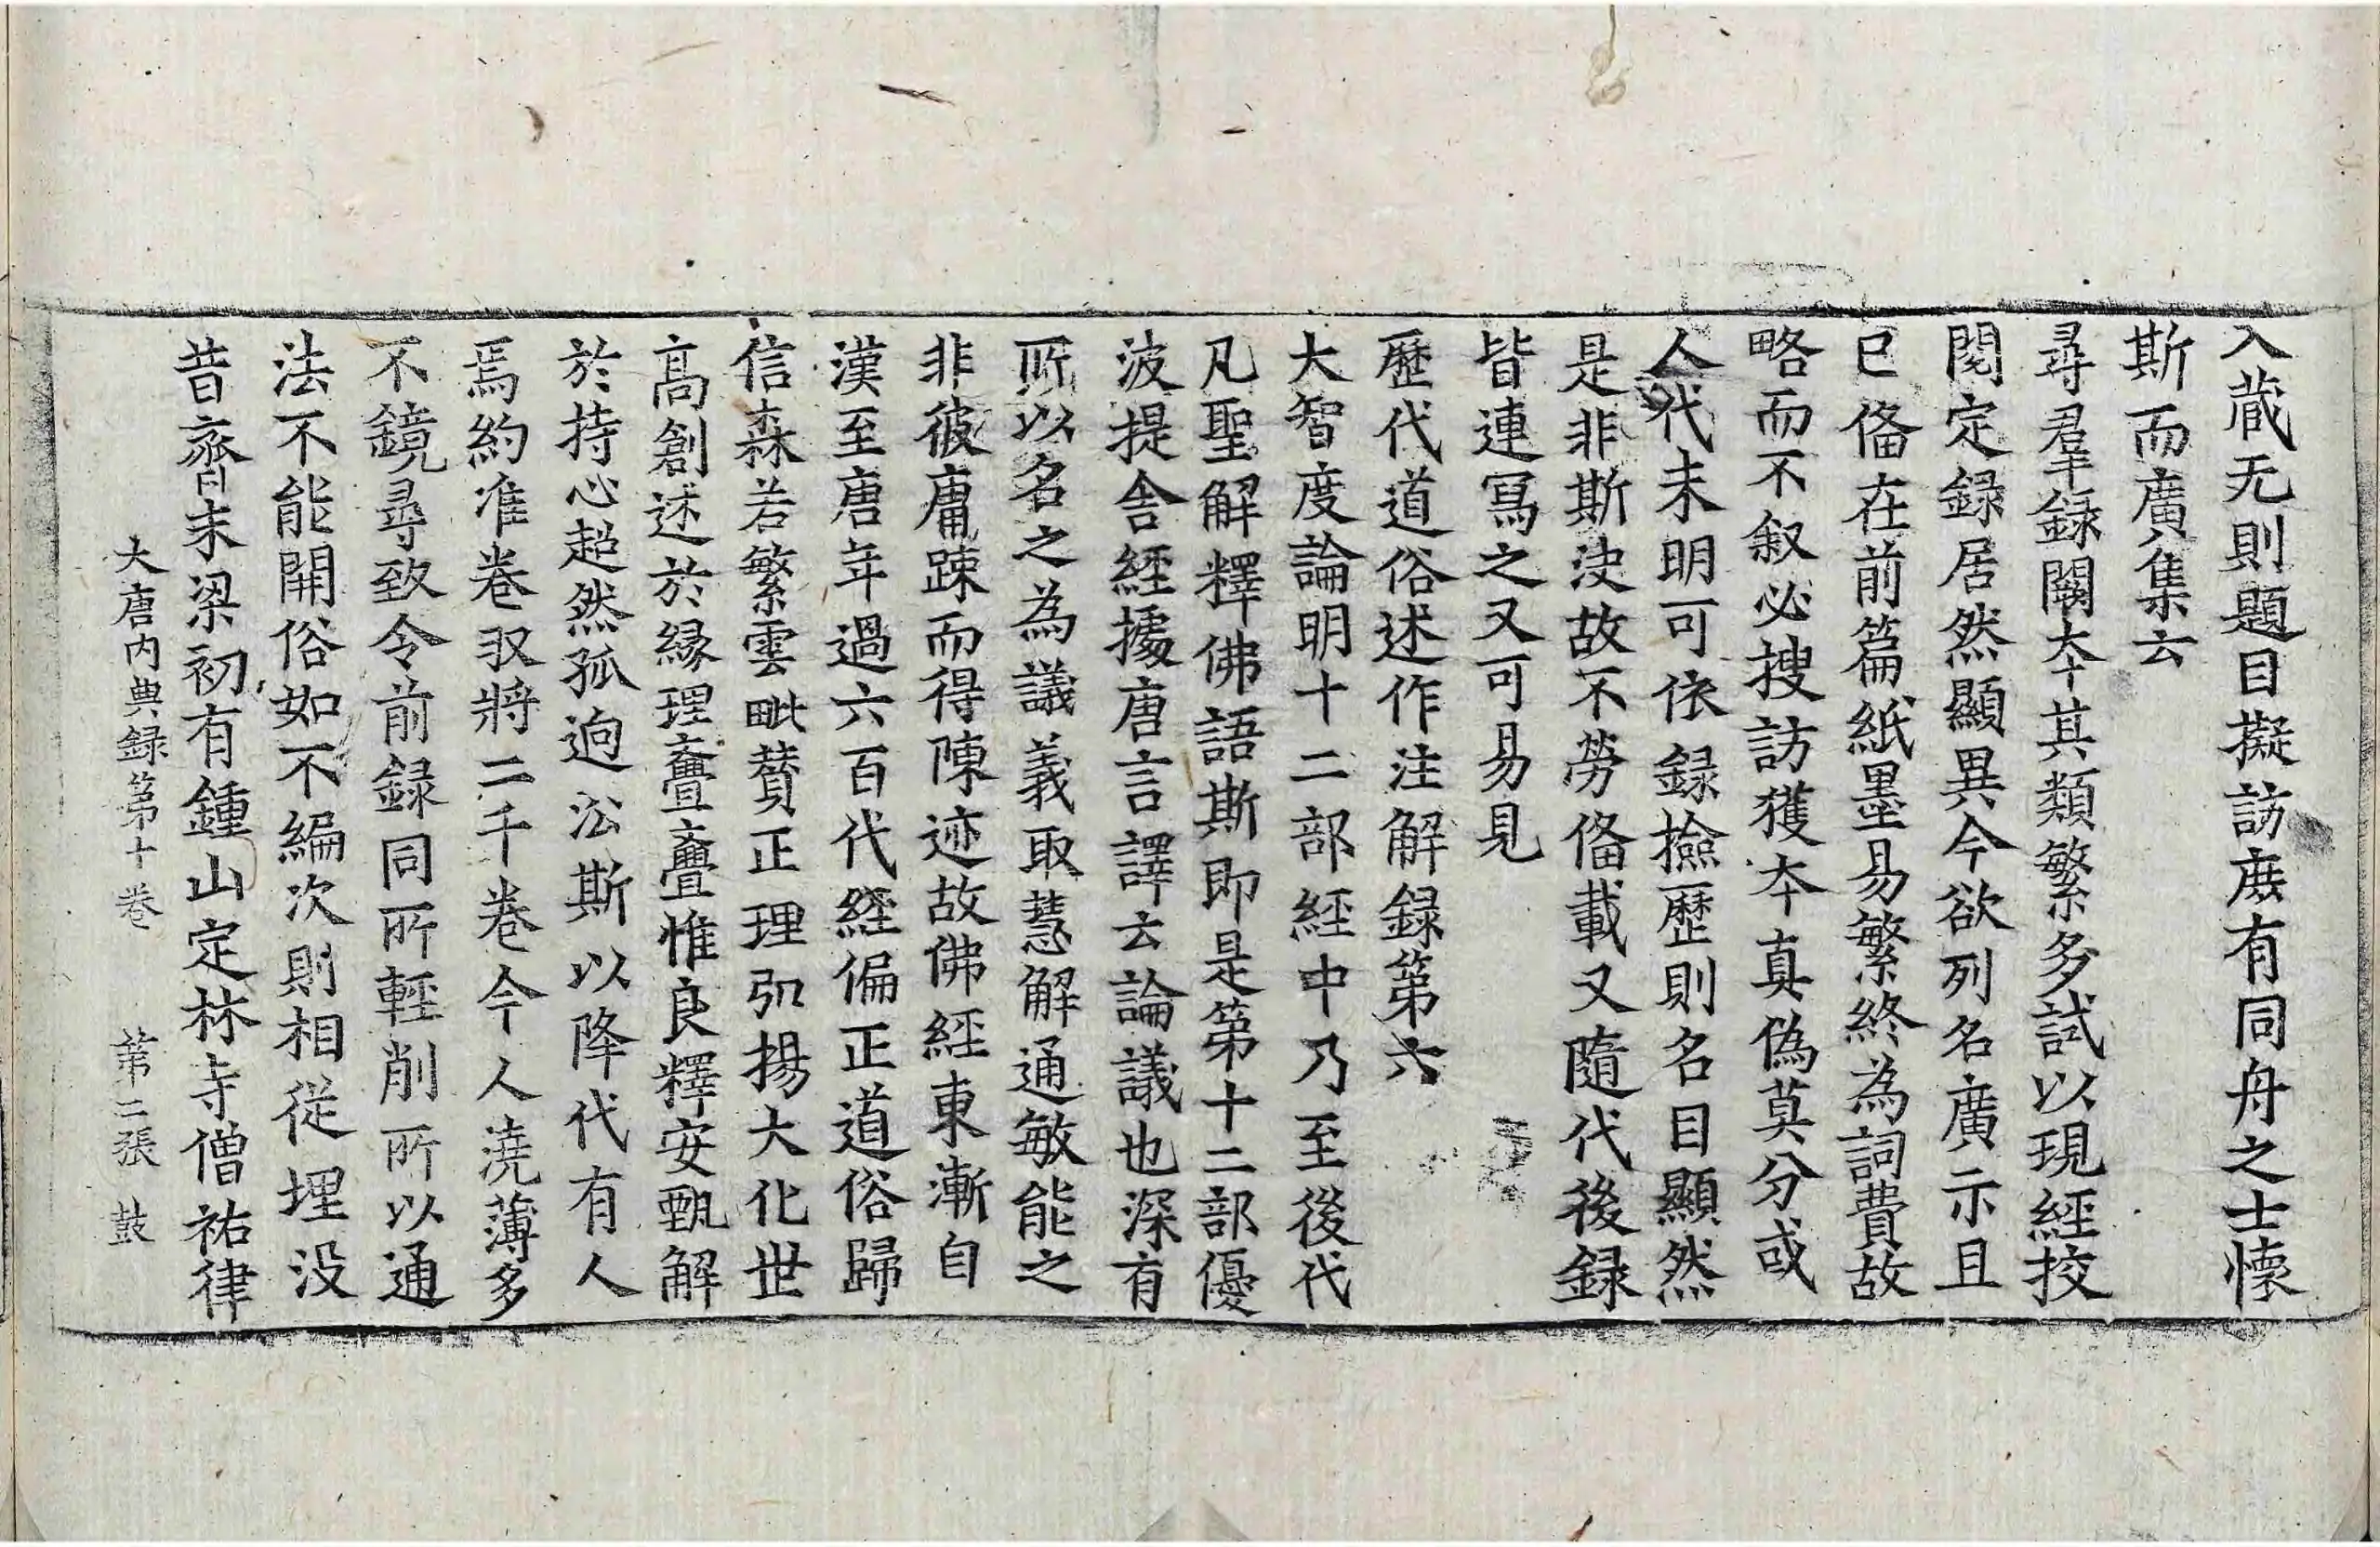 入蔵无則題目擬訪庻有同舟之士懷
斯而廣集云
尋羣録闕夲其類繁多試以現經挍
閱定録居然顯異今欲列名廣示且
已俻在前篇紙墨易繁終為詞費故
略而不叙必搜訪獲夲真偽莫分或
人代未明可依録撿歷則名目顯然
是非斯决故不勞俻載又隨代後録
皆連冩之又可易見
歷代道俗述作注解録第六
大智度論明十二部經中乃至後代
凡聖解釋佛語斯即是第十二部優
波提舍經據唐言譯云論議也深有
所以名之為議義取慧解通敏能之
非彼庸踈而得陳迹故佛經東漸自
漢至唐年過六百代經偏正道俗歸
信森若繁雲毗賛正理弘揚大化世
高創述於縁理亹亹惟良釋安甄解
於持心超然孤逈訟斯以降代有人
焉約准卷収將二千卷今人澆薄多
不鏡尋致令前録同所輕削所以通
法不能開俗如不編次則相從埋没
昔齊末梁初有鍾山定林寺僧祐律
大唐内典録第十卷　第二張　鼓